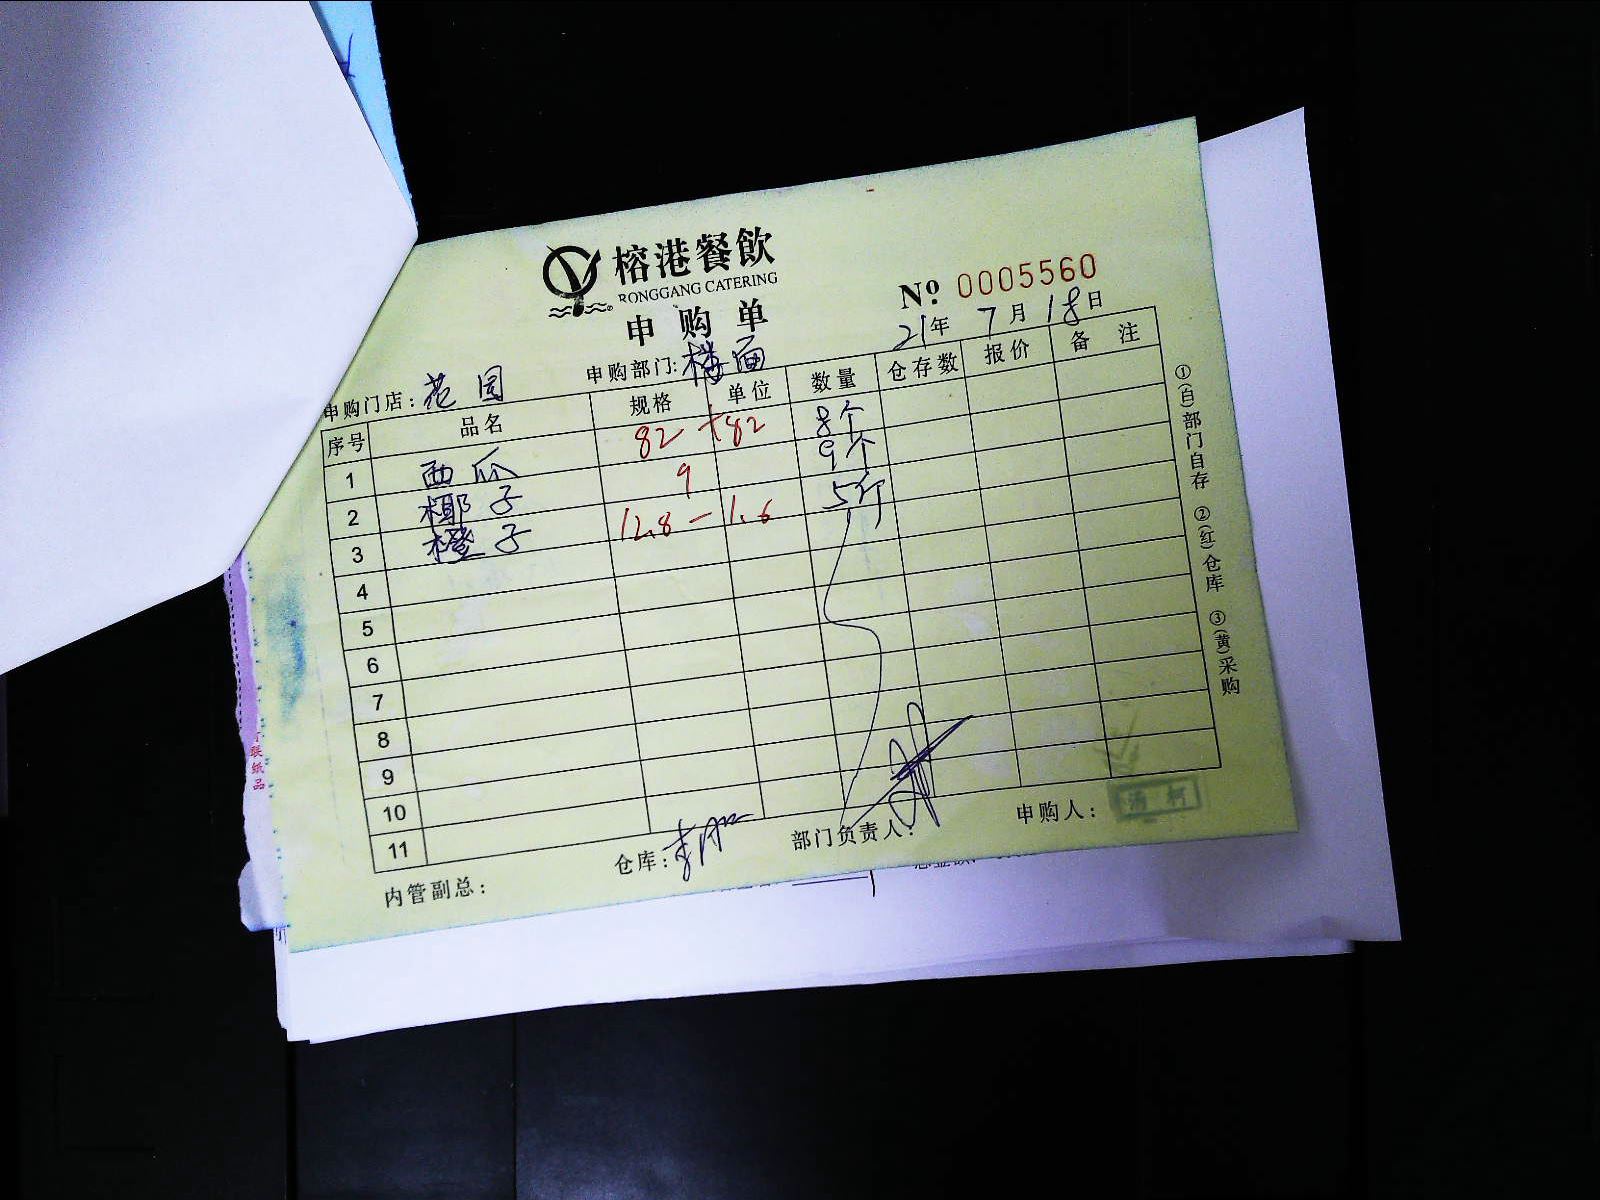 榕港餐飲
RONGGANG CATERING
申购单
No 0005560
21年 7月 18日
申购门店：花园 申购部门：楼面
序号 品名 规格 单位 数量 仓存数 报价 备注
1 西瓜 82 +82 8个
2 椰子 9 9个
3 橙子 12.8 - 1.6 5斤
4
5
6
7
8
9
10
11
内管副总： 仓库： 部门负责人： 申购人：
①(白)部门自存 ②(红)仓库 ③(黄)采购
联纸品